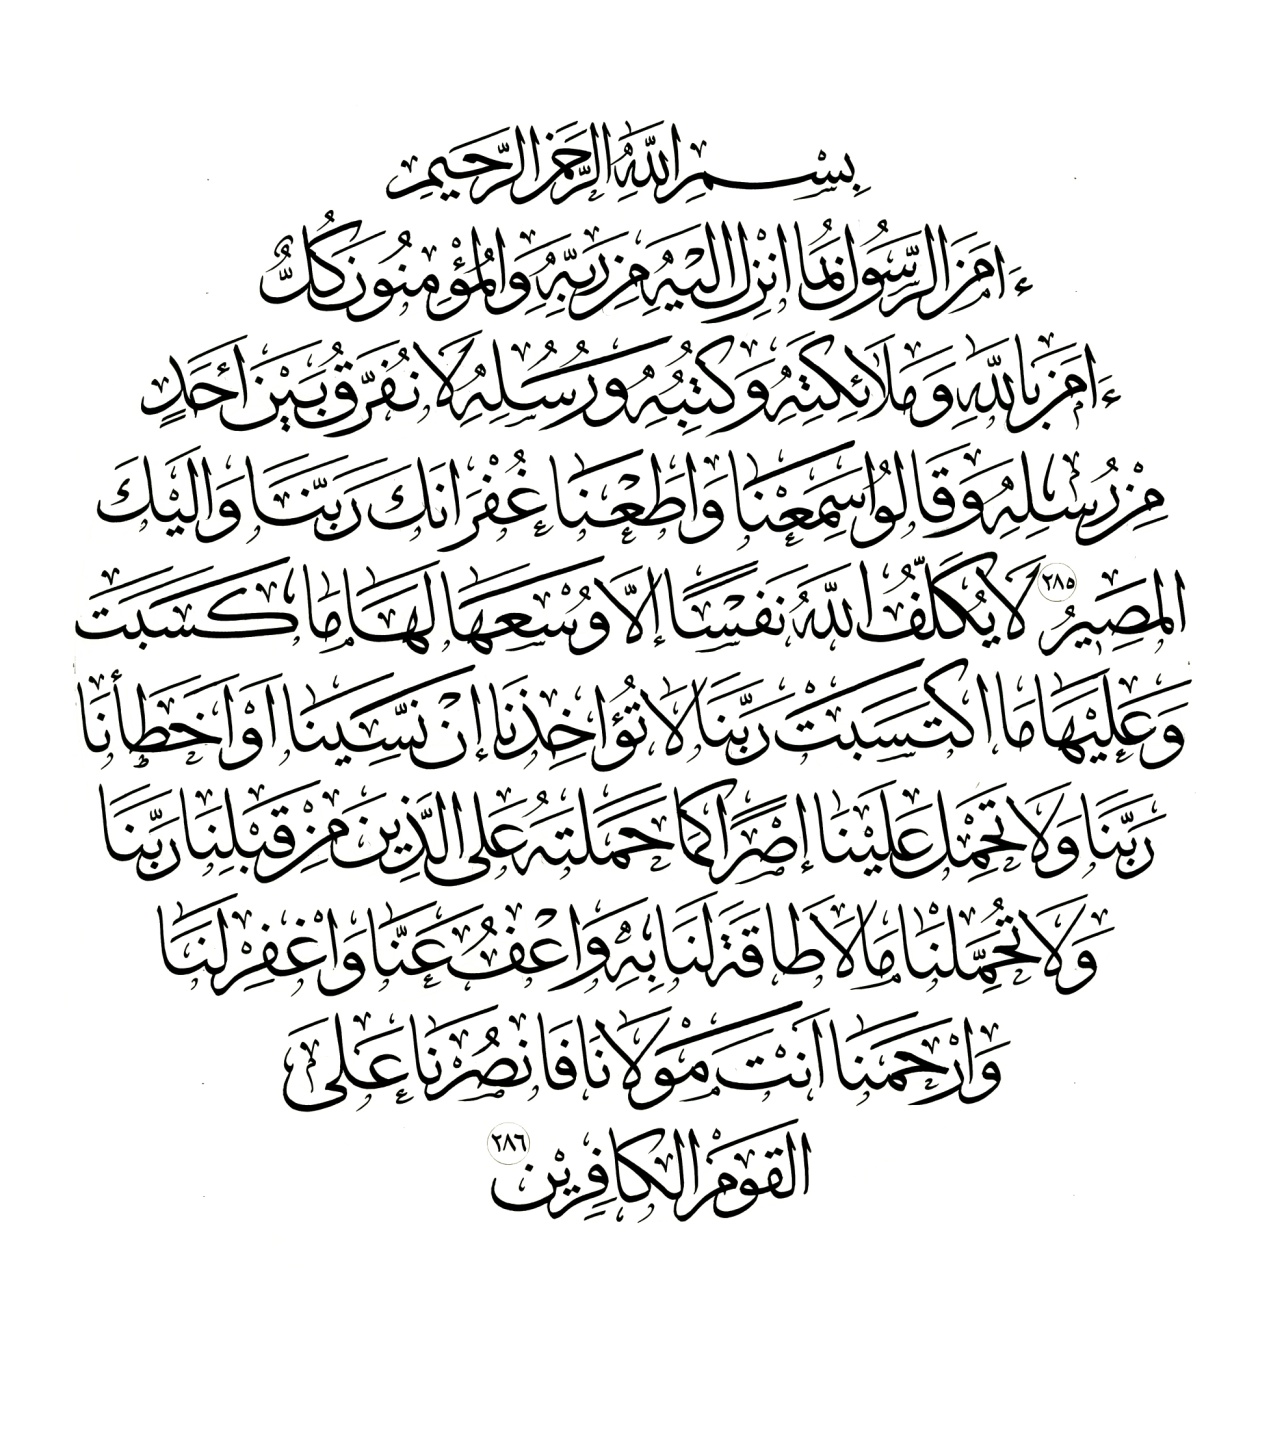 بِسْمِ اللَّهِ الرَّحْمَنِ الرَّحِيمِ
ءَامَنَ الرَّسُولُ بِمَا أُنْزِلَ إِلَيْهِ مِنْ رَبِّهِ وَالْمُؤْمِنُونَ كُلٌّ
ءَامَنَ بِاللَّهِ وَمَلَائِكَتِهِ وَكُتُبِهِ وَرُسُلِهِ لَا نُفَرِّقُ بَيْنَ أَحَدٍ
مِنْ رُسُلِهِ وَقَالُوا سَمِعْنَا وَأَطَعْنَا غُفْرَانَكَ رَبَّنَا وَإِلَيْكَ
الْمَصِيرُ ٢٨٥ لَا يُكَلِّفُ اللَّهُ نَفْسًا إِلَّا وُسْعَهَا لَهَا مَا كَسَبَتْ
وَعَلَيْهَا مَا اكْتَسَبَتْ رَبَّنَا لَا تُؤَاخِذْنَا إِنْ نَسِينَا أَوْ أَخْطَأْنَا
رَبَّنَا وَلَا تَحْمِلْ عَلَيْنَا إِصْرًا كَمَا حَمَلْتَهُ عَلَى الَّذِينَ مِنْ قَبْلِنَا رَبَّنَا
وَلَا تُحَمِّلْنَا مَا لَا طَاقَةَ لَنَا بِهِ وَاعْفُ عَنَّا وَاغْفِرْ لَنَا
وَارْحَمْنَا أَنْتَ مَوْلَانَا فَانْصُرْنَا عَلَى
الْقَوْمِ الْكَافِرِينَ ٢٨٦